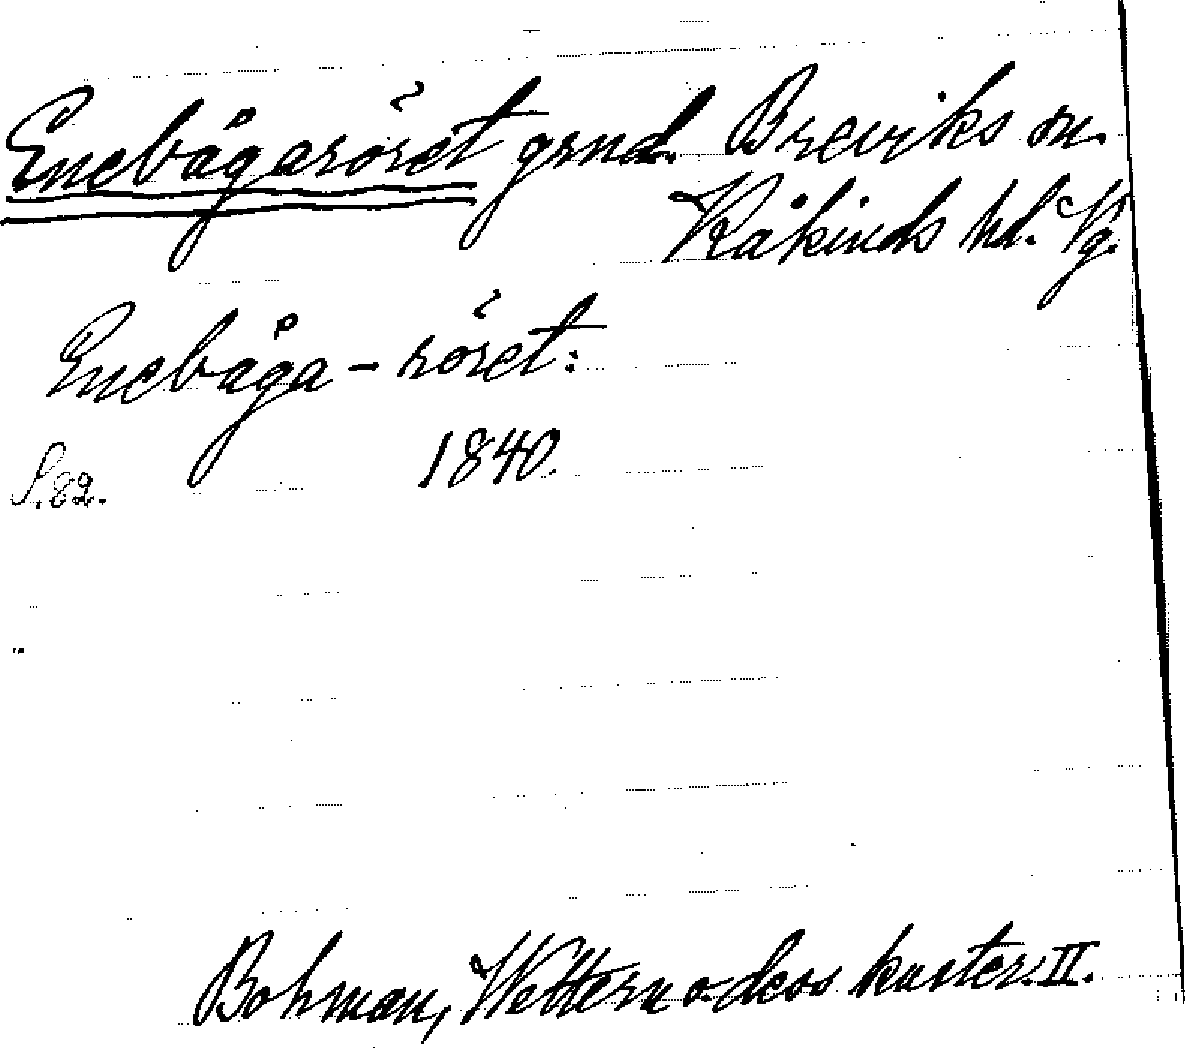 Enebågaröret grund. Breviks sn.
Kåkinds hd. Vg.
Enebåga-röret:
S. 82. 1840.
Bohman, Wettern o. dess kuster. II.